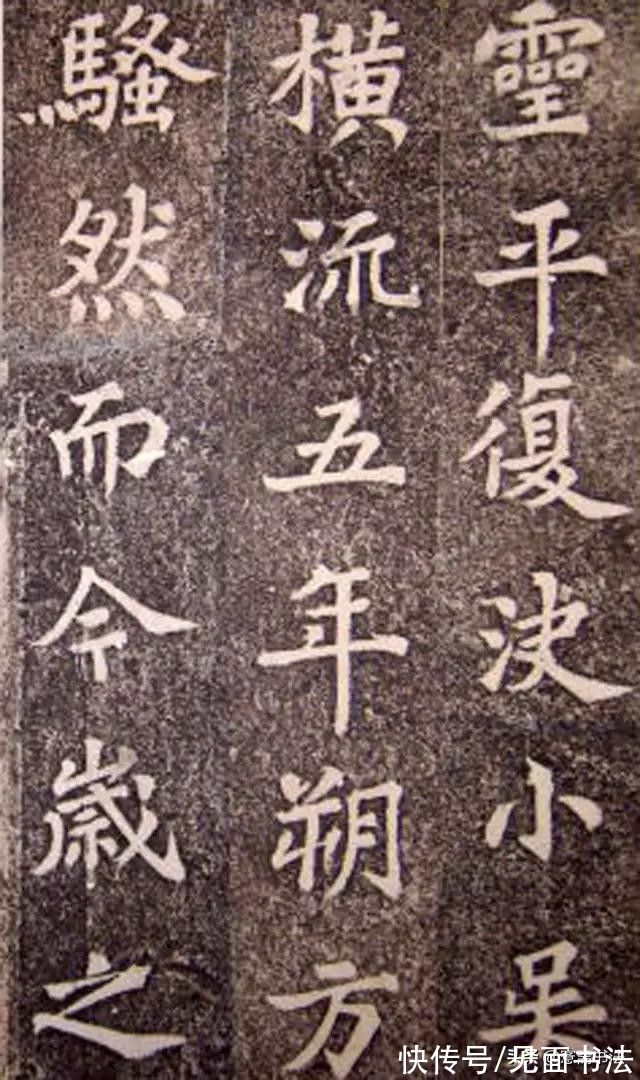 靈平復決小吴
橫流五年朔方
騷然而今歲之
快传号/见面书法